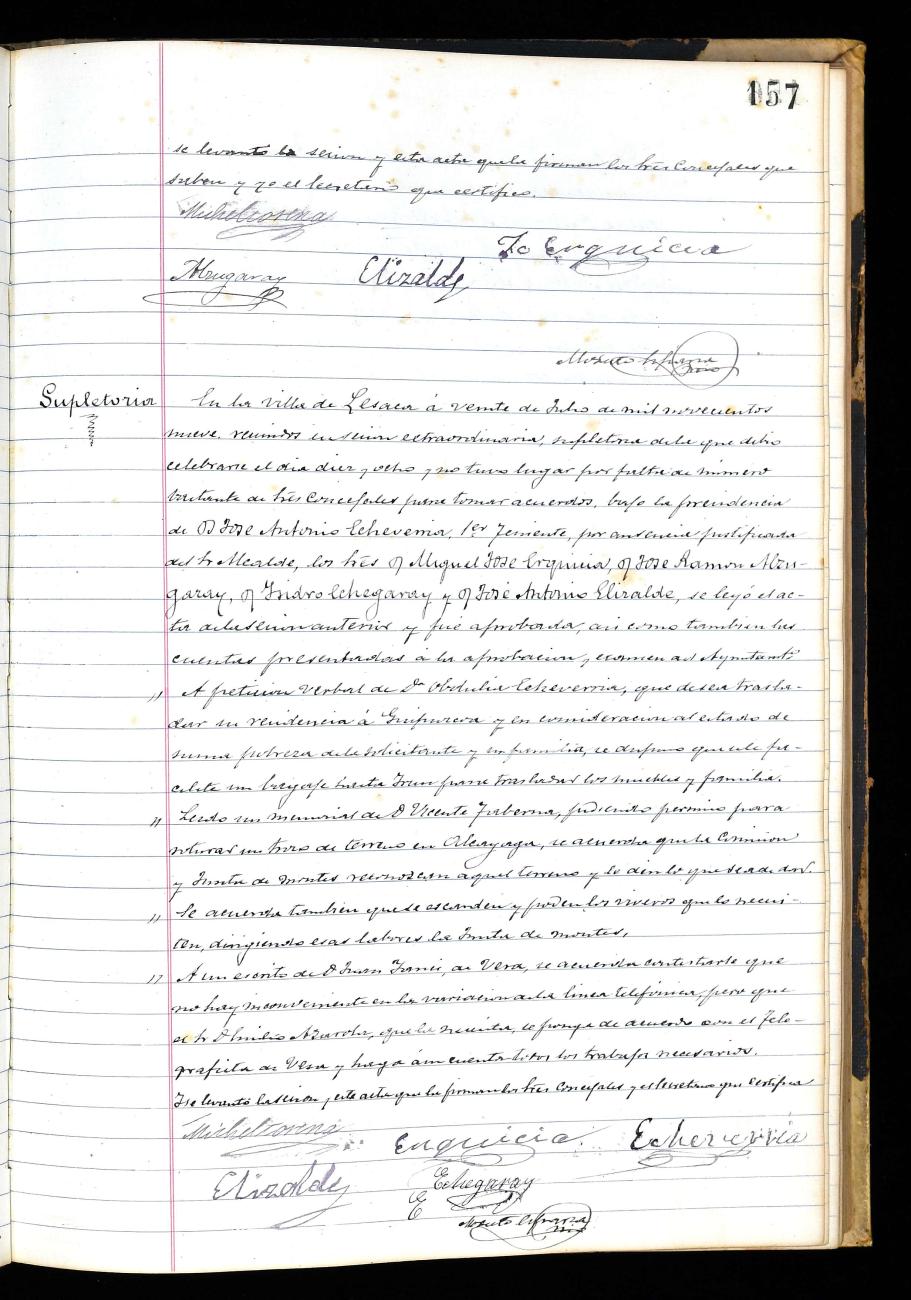 157
se levanto la sesion y esta acta que la firman los tres Concejales que
saben y yo el secretario que certifico.
Michelcorena
Fc Erquicia
Alzugaray Elizalde
Modesto Esparza
Srio
Supletoria
En la villa de Lesaca á veinte de Julio de mil novecientos
nueve, reunidos en sesion extraordinaria, supletoria dela que debio
celebrarse el dia diez y ocho y no tuvo lugar por falta de número
bastante de Sres Concejales para tomar acuerdos, bajo la presidencia
de D José Antonio Echeverria, 1er Teniente, por ausencia justificada
del Sr Alcalde, los Sres D Miguel José Erquicia, D José Ramon Alzu-
garay, D Ysidro Echegaray y D José Antonio Elizalde, se leyó el ac-
ta dela sesion anterior y fué aprobada, asi como tambien las
cuentas presentadas á la aprobacion y examen del Ayuntamto
" A peticion verbal de Da Obdulia Echeverria, que desea trasla-
dar su residencia á Guipuzcoa y en consideracion al estado de
suma pobreza dela solicitante y su familia, se dispuso que se le fa-
cilite un bagaje hasta Irun para trasladar los muebles y familia.
" Leido un memorial de D Vicente Taberna, pidiendo permiso para
roturar un trozo de terreno en Alcayaga, se acuerda que la Comision
y Junta de montes reconozcan aquel terreno y le den lo que sea de dar.
" Se acuerda tambien que se escarden y poden los viveros que lo necesi-
ten, dirigiendo esas labores la Junta de montes.
" A un escrito de D Juan, de Vera, se acuerda contestarle que
no hay inconveniente en la variacion dela linea telefónica, pero que
el Sr D Emilio Azarola, que la necesita, se ponga de acuerdo con el Tele-
grafista de Vera y haga á su cuenta todos los trabajos necesarios.
Y se levantó la sesion y esta acta que la firman los Sres Concejales y el Secretario que certifica
Michelcorena Erquicia. Echeverria
Elizalde Echegaray
E
Modesto Esparza
Srio